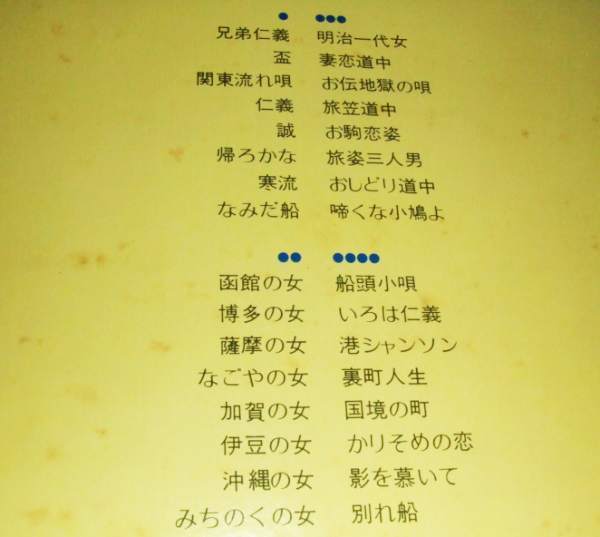 ●
兄弟仁義
盃
関東流れ唄
仁義
誠
帰ろかな
寒流
なみだ船
●●●
明治一代女
妻恋道中
お伝地獄の唄
旅笠道中
お駒恋姿
旅姿三人男
おしどり道中
啼くな小鳩よ
●●
函館の女
博多の女
薩摩の女
なごやの女
加賀の女
伊豆の女
沖縄の女
みちのくの女
●●●●
船頭小唄
いろは仁義
港シャンソン
裏町人生
国境の町
かりそめの恋
影を慕いて
別れ船